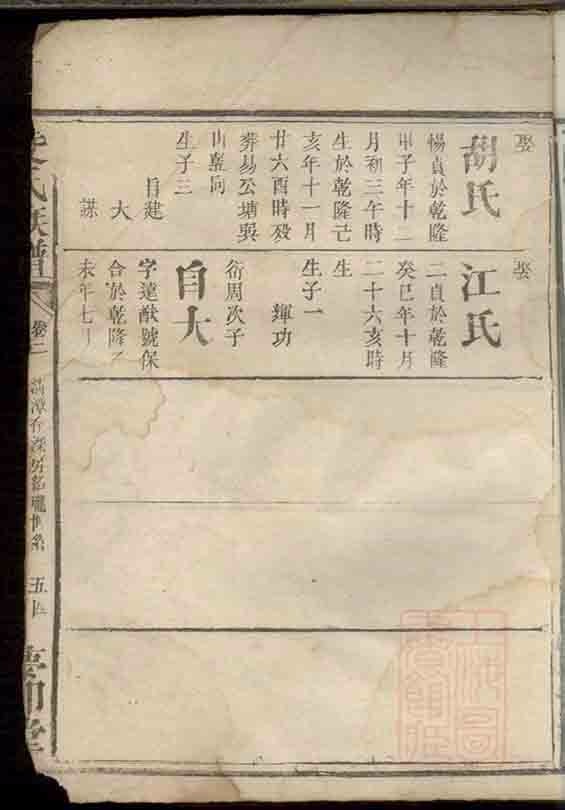 娶
胡氏
惕貞於乾隆
甲子年十二
月初三午時
生於乾隆己
亥年十一月
廿六酉時殁
葬易公塘巽
山
向
生子三
自建
大
謀
娶
江氏
二貞於乾隆
癸巳年十月
二十六亥時
生
生子一
輝功
衍周次子
自大
字達猷號保
合於乾隆乙
未年七
氏族譜
卷二
五